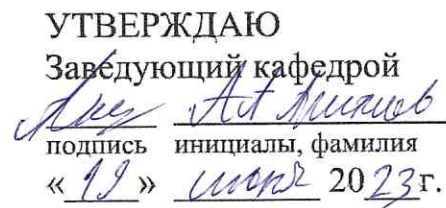 УТВЕРЖДАЮ
Заведующий кафедрой
подпись инициалы, фамилия
«19» июня 2023г.